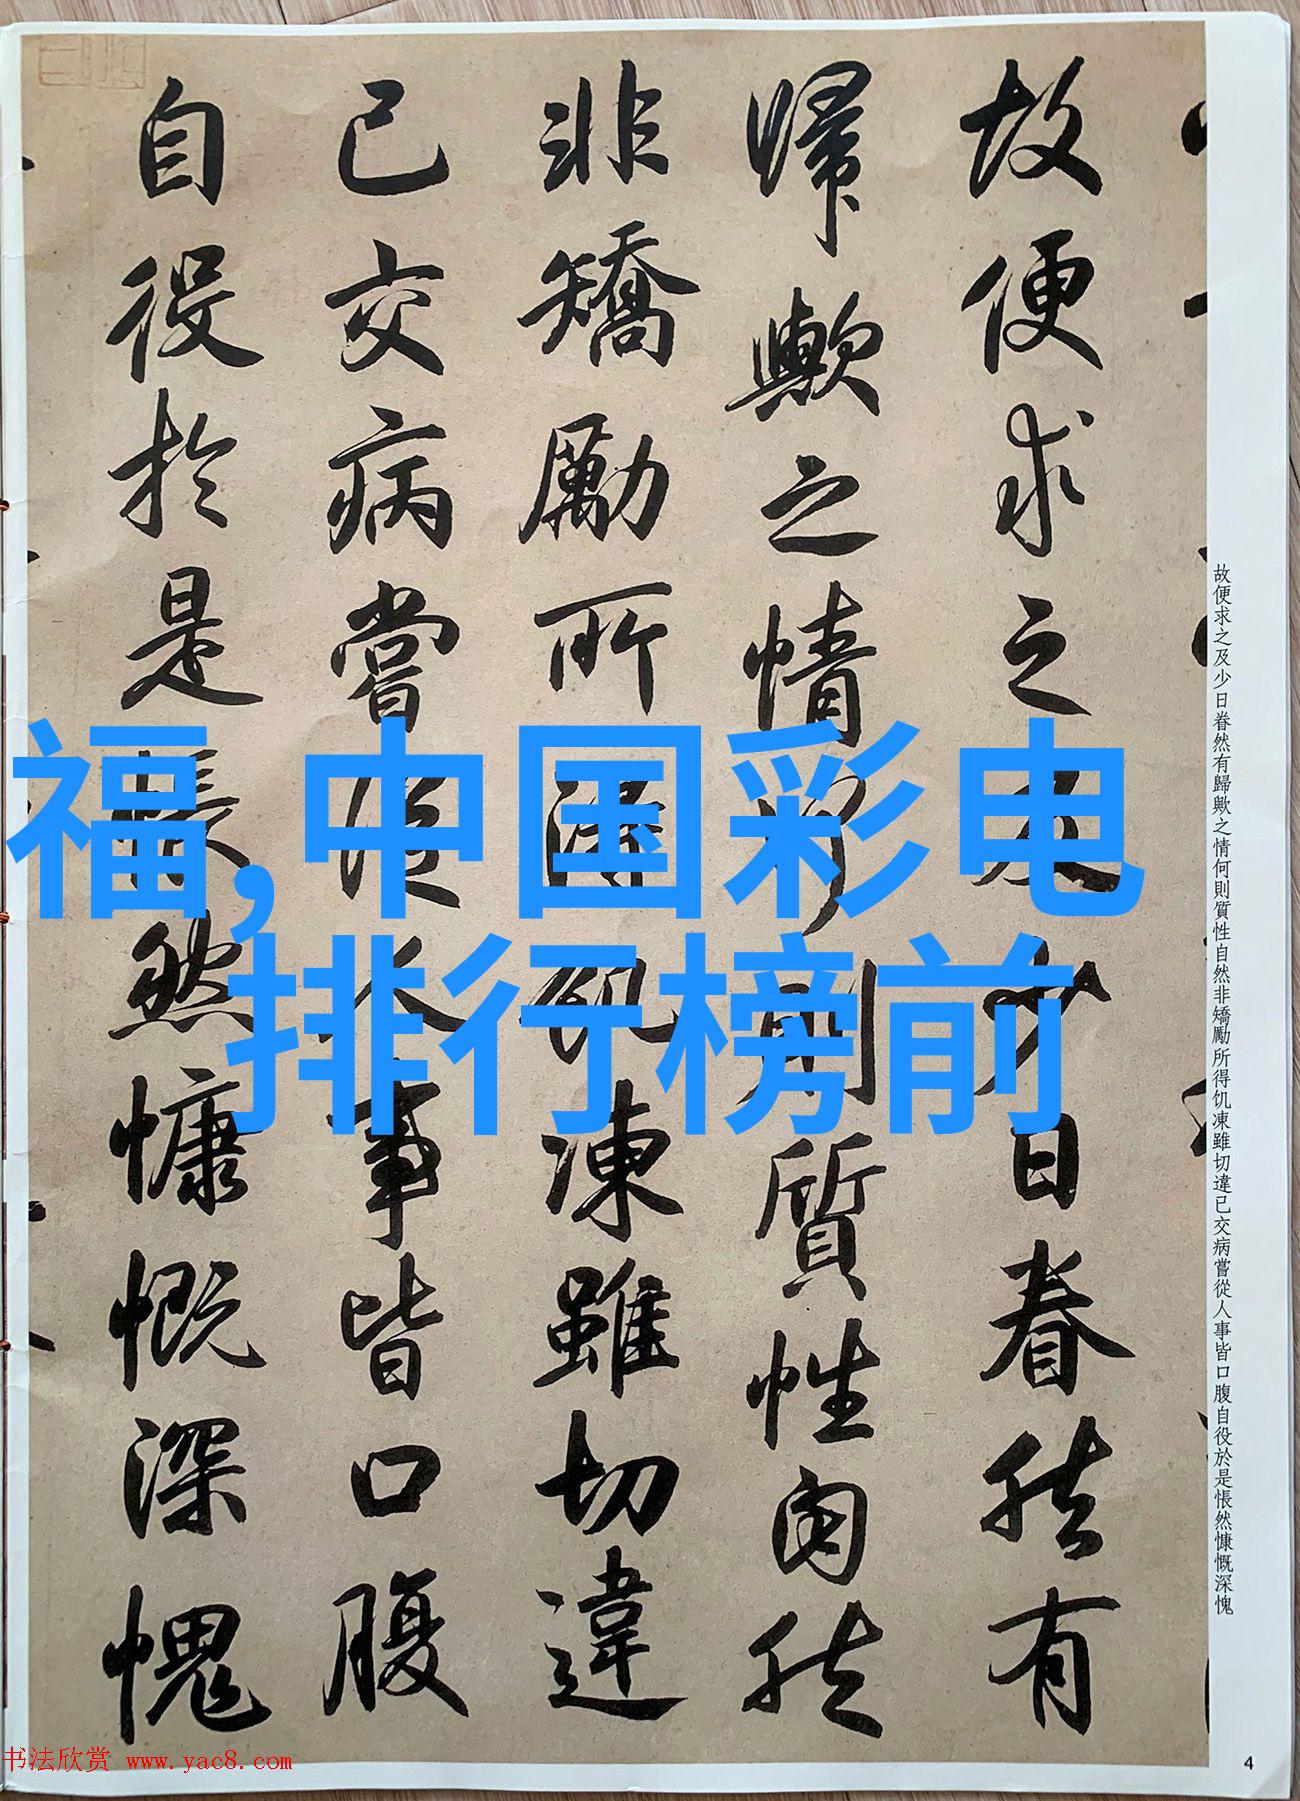 故便求之及少日眷然有
歸歟之情何則質性自然
非矯勵所得飢凍雖切違
已交病嘗從人事皆口腹
自役於是悵然慷慨深愧
故便求之及少日眷然有歸歟之情何則質性自然非矯勵所得饥凍雖切違已交病嘗從人事皆口腹自役於是悵然慷慨深愧
福,中国彩电
排行榜前
书法欣赏 www.yac8.com
4